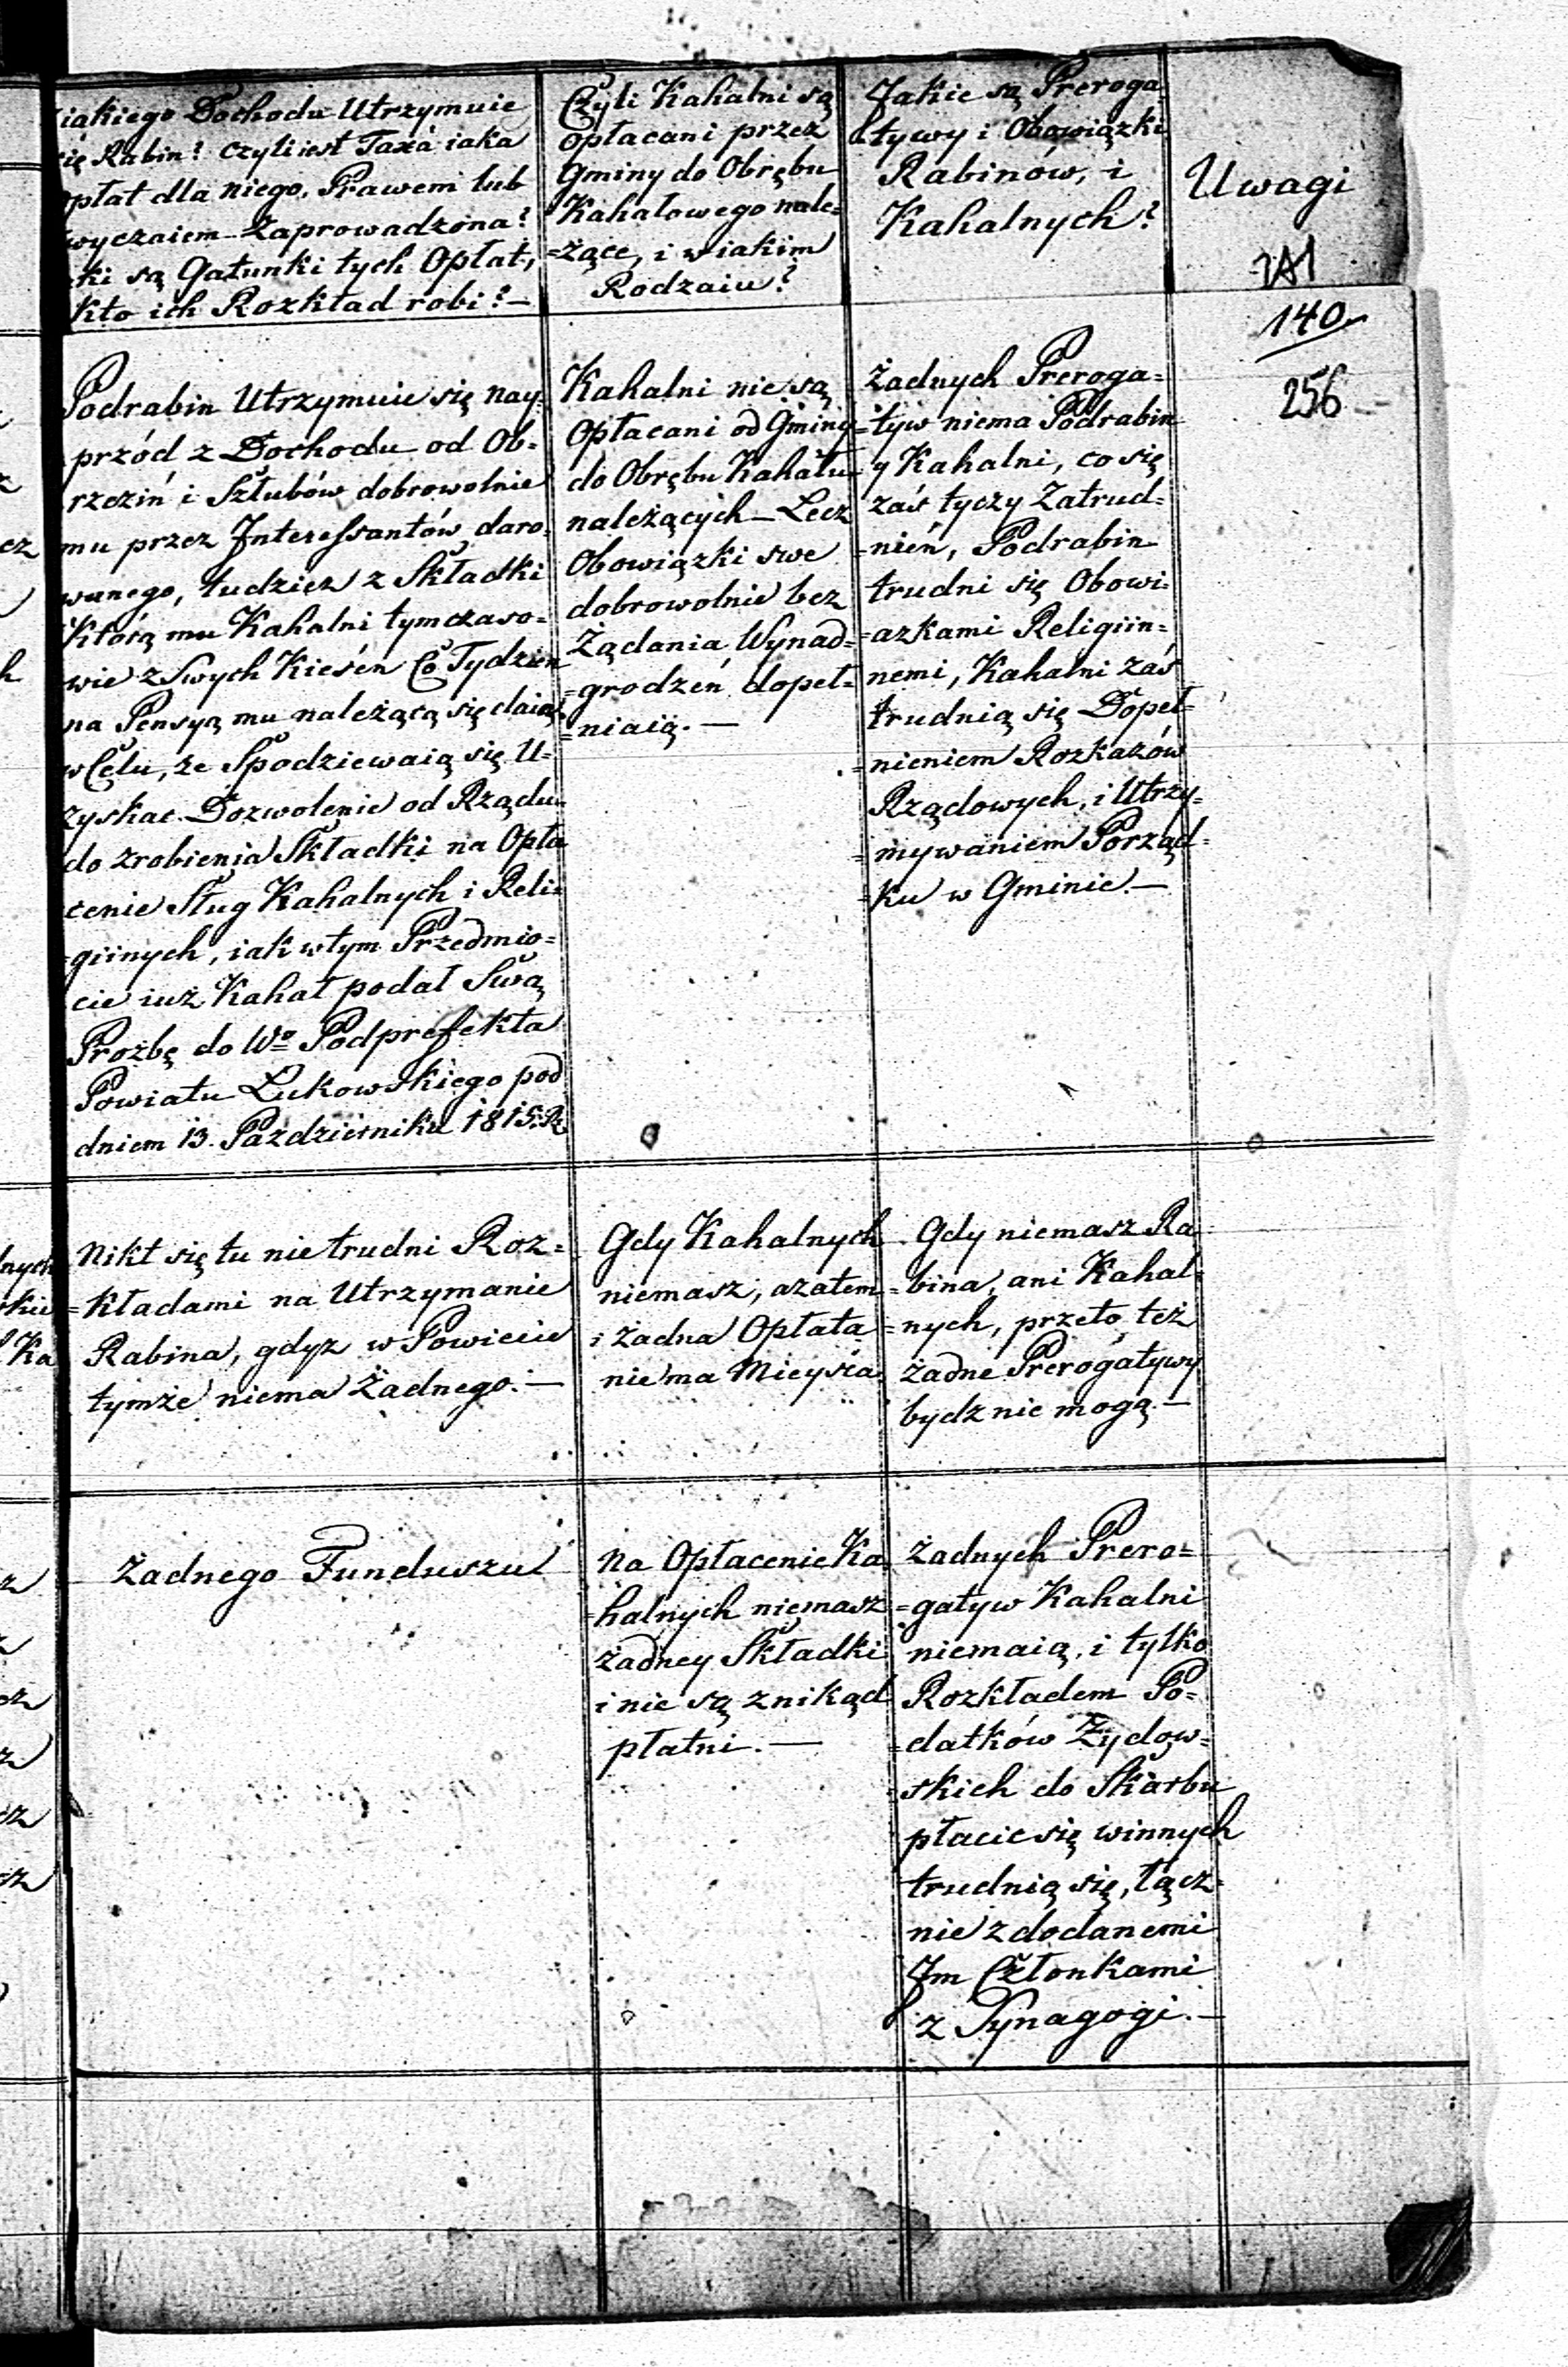 iakiego Dochodu Utrzymuie
się Rabin? czyli iest Taxa iaka
opłat dla niego, Prawem lub
zwyczaiem Zaprowadzona?
iaki są Gatunki tych Opłat,
kto ich Rozkład robi?—
Czyli Kahalni są
opłacani przez
Gminy do Obrębu
Kahałowego nale=
=żące, i w iakim
Rodzaiu?
Jakie są Preroga
tywy i Obowiązki
Rabinów, i
Kahalnych?
Uwagi
141
140
256
Podrabin Utrzymuie się nay=
przód z Dochodu od Ob=
rzeziń i Szłubów dobrowolnie
mu przez Interessantów daro=
wanego, tudzież z Składki
którą mu Kahalni tymczaso=
wie z Swych Kieseń Co Tydzień
na Pensyą mu należącą się daią,
w Celu, że Spodziewaią się U=
zyskac Dozwolenie od Rządu
do zrobienia Składki na Opła
cenie Sług Kahalnych i Reli=
=giinych, iak w tym Przedmio=
cie iuż Kahał podał Swą
Proźbę do Wo Podprefekta
Powiatu Łukowskiego pod
dniem 13. Pazdziernika 1815. R.
Kahalni nie są
Opłacani od Gminy
do Obrębu Kahału
należących — Lecz
Obowiązki swe
dobrowolnie bez
Żądania Wynad=
=grodzeń dopeł=
=niaią. —
Żadnych Preroga=
=tyw niema Podrabin
y Kahalni, co się
zaś tyczy Zatrud=
=nień, Podrabin
trudni się Obowi=
=azkami Religiin=
nemi, Kahalni zaś
trudnią się Dopeł=
=nieniem Rozkazów
Rządowych, i Utrzy=
=mywaniem Porząd=
=ku w Gminie.—
Nikt się tu nie trudni Roz=
=kładami na Utrzymanie
Rabina, gdyz w Powiecie
tymże niema Żadnego.—
Gdy Kahalnych
niemasz, azatem
i żadna Opłata
niema Mieysca.
Gdy niemasz Ra
=bina, ani Kahal=
=nych, przeto też
żadne Prerogatywy
bydz nie mogą.—
Żadnego Funduszu
Na Opłacenie Ka
=halnych niemasz
żadney Składki
i nie są znikąd
płatni.—
Żadnych Prero=
=gatyw Kahalni
niemaią, i tylko
Rozkładem Po=
=datków Żydow=
=skich do Skarbu
płacic się winnych
trudnią się, łącz=
nie z dodanemi
Im Członkami
z Synagogi.—